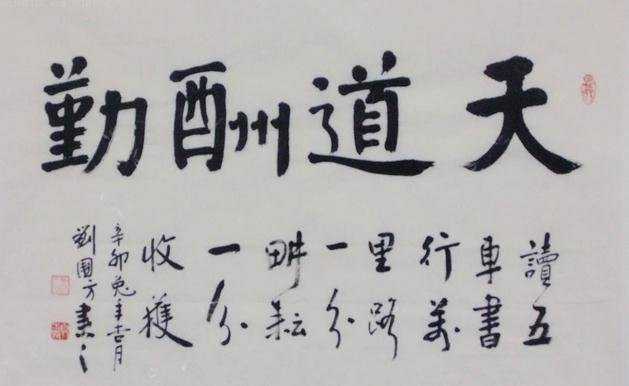 天道酬勤
讀五
車書
行萬
里路
一分
畊耘
一分
收獲
辛卯兔年吉月
劉國方書之